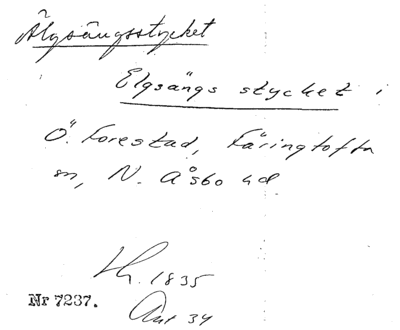 Älgsängsstycket
Elgsängs stycket i
Ö. Forestad, Färingtofta
sn, N. Åsbo hd
Lh. 1835
Nr 7237.
Ant 34